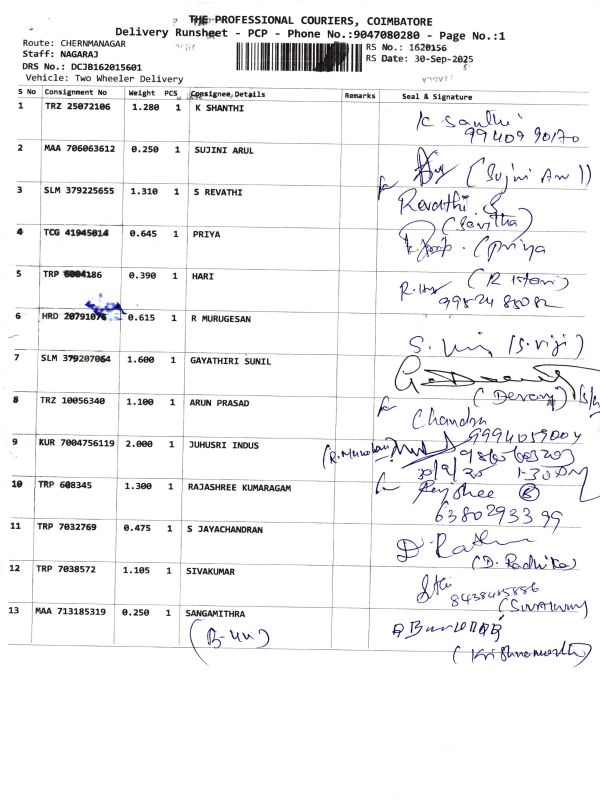 THE PROFESSIONAL COURIERS, COIMBATORE
Delivery Runsheet - PCP - Phone No.:9047080280 - Page No.:1
Route: CHERNMANAGAR
RS No.: 1620156
Staff: NAGARAJ
RS Date: 30-Sep-2025
DRS No.: DCJB162015601
Vehicle: Two Wheeler Delivery
S No Consignment No Weight PCS Consignee Details Remarks Seal & Signature
1 TRZ 25072106 1.280 1 K SHANTHI
K Santhi
99409 90170
2 MAA 706063612 0.250 1 SUJINI ARUL
(Sujini Arul)
3 SLM 379225655 1.310 1 S REVATHI
for Revathi S
(Savitha)
4 TCG 41945014 0.645 1 PRIYA
(priya
5 TRP 6004186 0.390 1 HARI
R. (R Hari)
6 HRD 20791076 0.615 1 R MURUGESAN
S. (S. Viji)
7 SLM 379207064 1.600 1 GAYATHIRI SUNIL
8 TRZ 10056340 1.100 1 ARUN PRASAD
for Chandra
9994059004
9 KUR 7004756119 2.000 1 JUHUSRI INDUS
30/9/20 1.30
10 TRP 608345 1.300 1 RAJASHREE KUMARAGAM
for
63802933 99
11 TRP 7032769 0.475 1 S JAYACHANDRAN
(D. Radhika)
12 TRP 7038572 1.105 1 SIVAKUMAR
8438485886
13 MAA 713185319 0.250 1 SANGAMITHRA